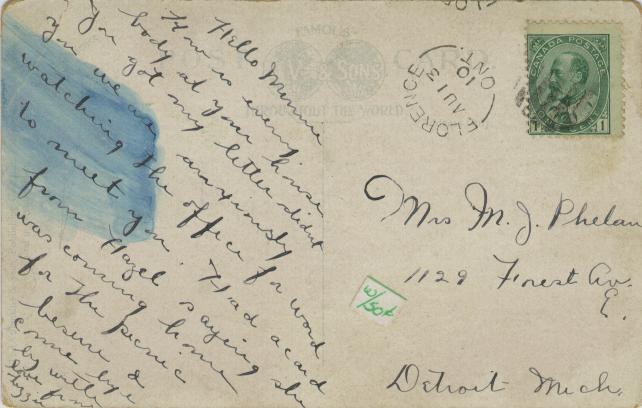 Hello Minnie
How is every
body at your house
you got my letter didnt
you we are anxiously
watching the office for word
to meet you. Had a card
from Hazel saying she
was coming home
for the picnic
besure &
come bye
bye with
love from
FAMOUS
POST CARD
& SONS
THROUGHOUT THE WORLD
FLORENCE
AU 13
10
ONT.
CANADA POSTAGE
1 1
Mrs M. J. Phelan
1129 Forest Av.
E.
Detroit Mich.
w/50¢